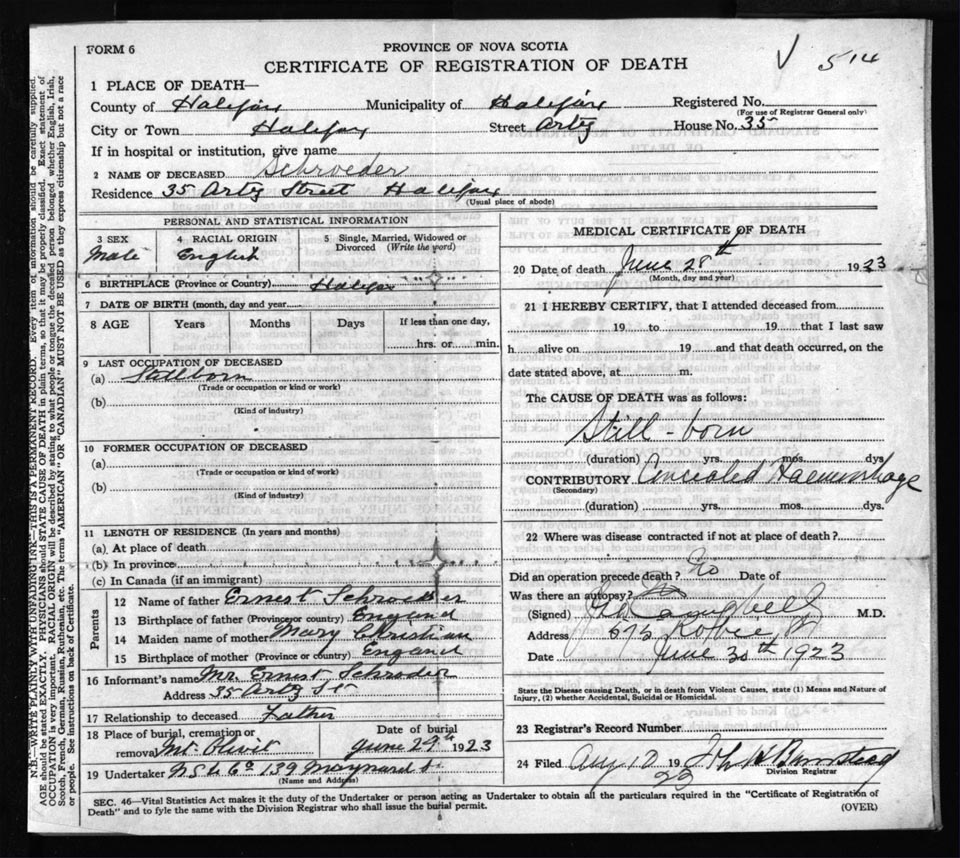 FORM 6
PROVINCE OF NOVA SCOTIA
CERTIFICATE OF REGISTRATION OF DEATH
√ 514
1 PLACE OF DEATH—
County of Halifax Municipality of Halifax Registered No.
(For use of Registrar General only)
City or Town Halifax Street Artz House No. 35
If in hospital or institution, give name
2 NAME OF DECEASED Schroeder
Residence 35 Artz Street Halifax
(Usual place of abode)
PERSONAL AND STATISTICAL INFORMATION
3 SEX 4 RACIAL ORIGIN 5 Single, Married, Widowed or Divorced (Write the word)
Male English
6 BIRTHPLACE (Province or Country) Halifax
7 DATE OF BIRTH (month, day and year)
8 AGE Years Months Days If less than one day,
hrs. or min.
9 LAST OCCUPATION OF DECEASED
(a) Stillborn
(Trade or occupation or kind or work)
(b)
(Kind of industry)
10 FORMER OCCUPATION OF DECEASED
(a)
(Trade or occupation or kind of work)
(b)
(Kind of industry)
11 LENGTH OF RESIDENCE (In years and months)
(a) At place of death
(b) In province
(c) In Canada (if an immigrant)
Parents
12 Name of father Ernest Schroeder
13 Birthplace of father (Province or country) England
14 Maiden name of mother Mary Christian
15 Birthplace of mother (Province or country) England
16 Informant's name Mr. Ernest Schroder
Address 35 Artz St
17 Relationship to deceased Father
18 Place of burial, cremation or Date of burial
removal Mt Olivit June 29th 1923
19 Undertaker N S U Co 139 Maynard St
(Name and Address)
MEDICAL CERTIFICATE OF DEATH
20 Date of death June 28th 1923
(Month, day and year)
21 I HEREBY CERTIFY, that I attended deceased from
19 to 19 that I last saw
h alive on 19 and that death occurred, on the
date stated above, at m.
The CAUSE OF DEATH was as follows:
Still-born
(duration) yrs. mos. dys.
CONTRIBUTORY Concealed Haemorrhage
(Secondary)
(duration) yrs. mos. dys.
22 Where was disease contracted if not at place of death?
Did an operation precede death? No Date of
Was there an autopsy? No
(Signed) Campbell M.D.
Address 675 Robie St
Date June 30th 1923
State the Disease causing Death, or in death from Violent Causes, state (1) Means and Nature of
Injury, (2) whether Accidental, Suicidal or Homicidal.
23 Registrar's Record Number
24 Filed Aug 10 1923 John H Barnstead
Division Registrar
SEC. 46—Vital Statistics Act makes it the duty of the Undertaker or person acting as Undertaker to obtain all the particulars required in the "Certificate of Registration of
Death" and to fyle the same with the Division Registrar who shall issue the burial permit.
(OVER)
N.B.—WRITE PLAINLY WITH UNFADING INK—THIS IS A PERMANENT RECORD. Every item of information should be carefully supplied.
AGE should be stated EXACTLY. PHYSICIANS should STATE CAUSE OF DEATH in plain terms, so that it may be properly classified. Exact statement of
OCCUPATION is very important. RACIAL ORIGIN will be described by stating to what people or tongue the deceased person belonged whether English, Irish,
Scotch, French, German, Russian, Ruthenian, etc. The terms "AMERICAN" OR "CANADIAN" MUST NOT BE USED as they express citizenship but not a race
or people. See instructions on back of Certificate.